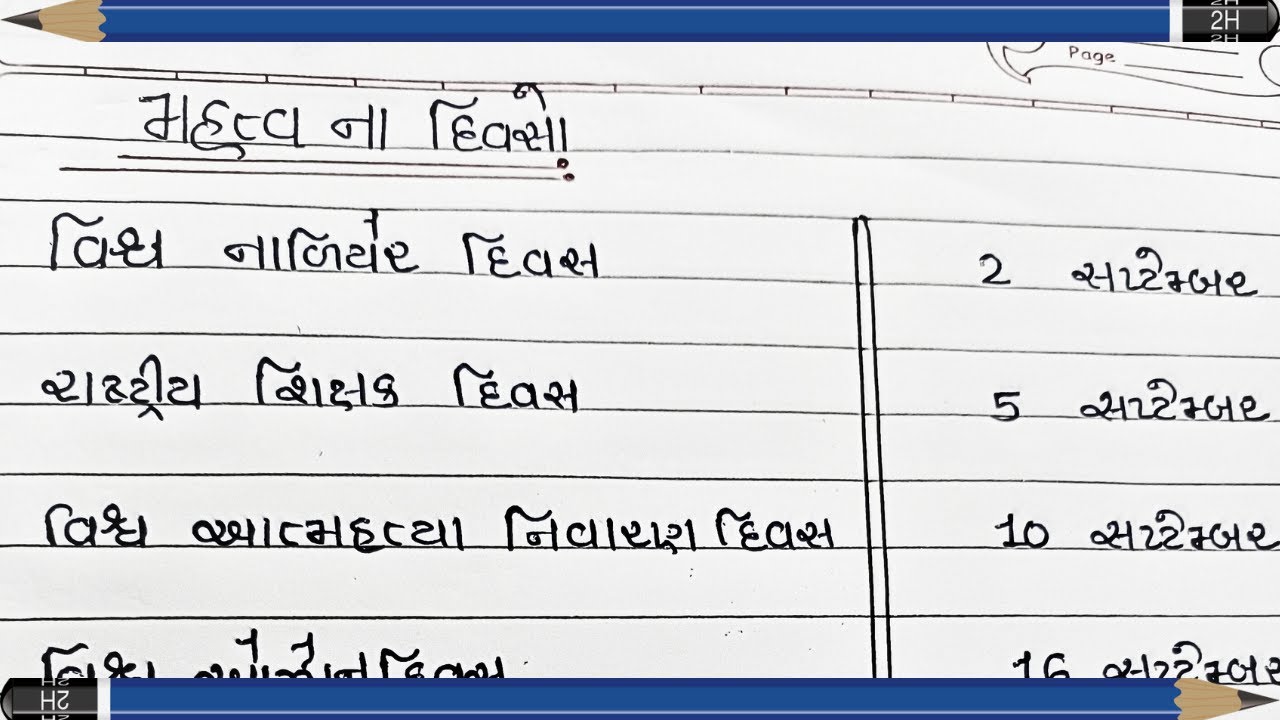 2H
Page
મહત્વ ના દિવસો
વિશ્વ નાળિયેર દિવસ 2 સપ્ટેમ્બર
રાષ્ટ્રીય શિક્ષક દિવસ 5 સપ્ટેમ્બર
વિશ્વ આત્મહત્યા નિવારણ દિવસ 10 સપ્ટેમ્બર
વિશ્વ ઓઝોન દિવસ 16 સપ્ટેમ્બર
2H